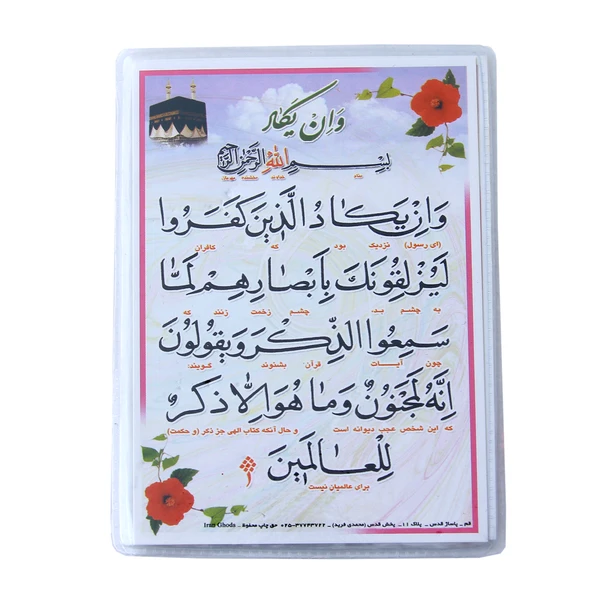 وَاِنْ یَکٰادُ
بِسْمِ اللّٰهِ الرَّحْمٰنِ الرَّحیمِ
بنام خداوند بخشنده مهربان
وَاِنْ یَکٰادُ الَّذینَ کَفَرُوا
(ای رسول) نزدیک بود که کافران
لَیُزْلِقُونَكَ بِاَبْصٰارِهِمْ لَمّٰا
به چشم بد، چشم زخمت زنند که
سَمِعُوا الذِّکْرَ وَیَقُولُونَ
چون آیات قرآن بشنوند گویند:
اِنَّهُ لَمَجْنُونٌ وَمٰا هُوَ اِلاّٰ ذِکْرٌ
که این شخص عجب دیوانه است و حال آنکه کتاب الهی جز ذکر (و حکمت)
لِلْعٰالَمینَ
برای عالمیان نیست
قم _ پاساژ قدس _ پلاک ۱۱ _ پخش قدس (محمدی فرید) _ ۳۷۷۴۳۷۲۲-۰۲۵ حق چاپ محفوظ _ Iran Ghods